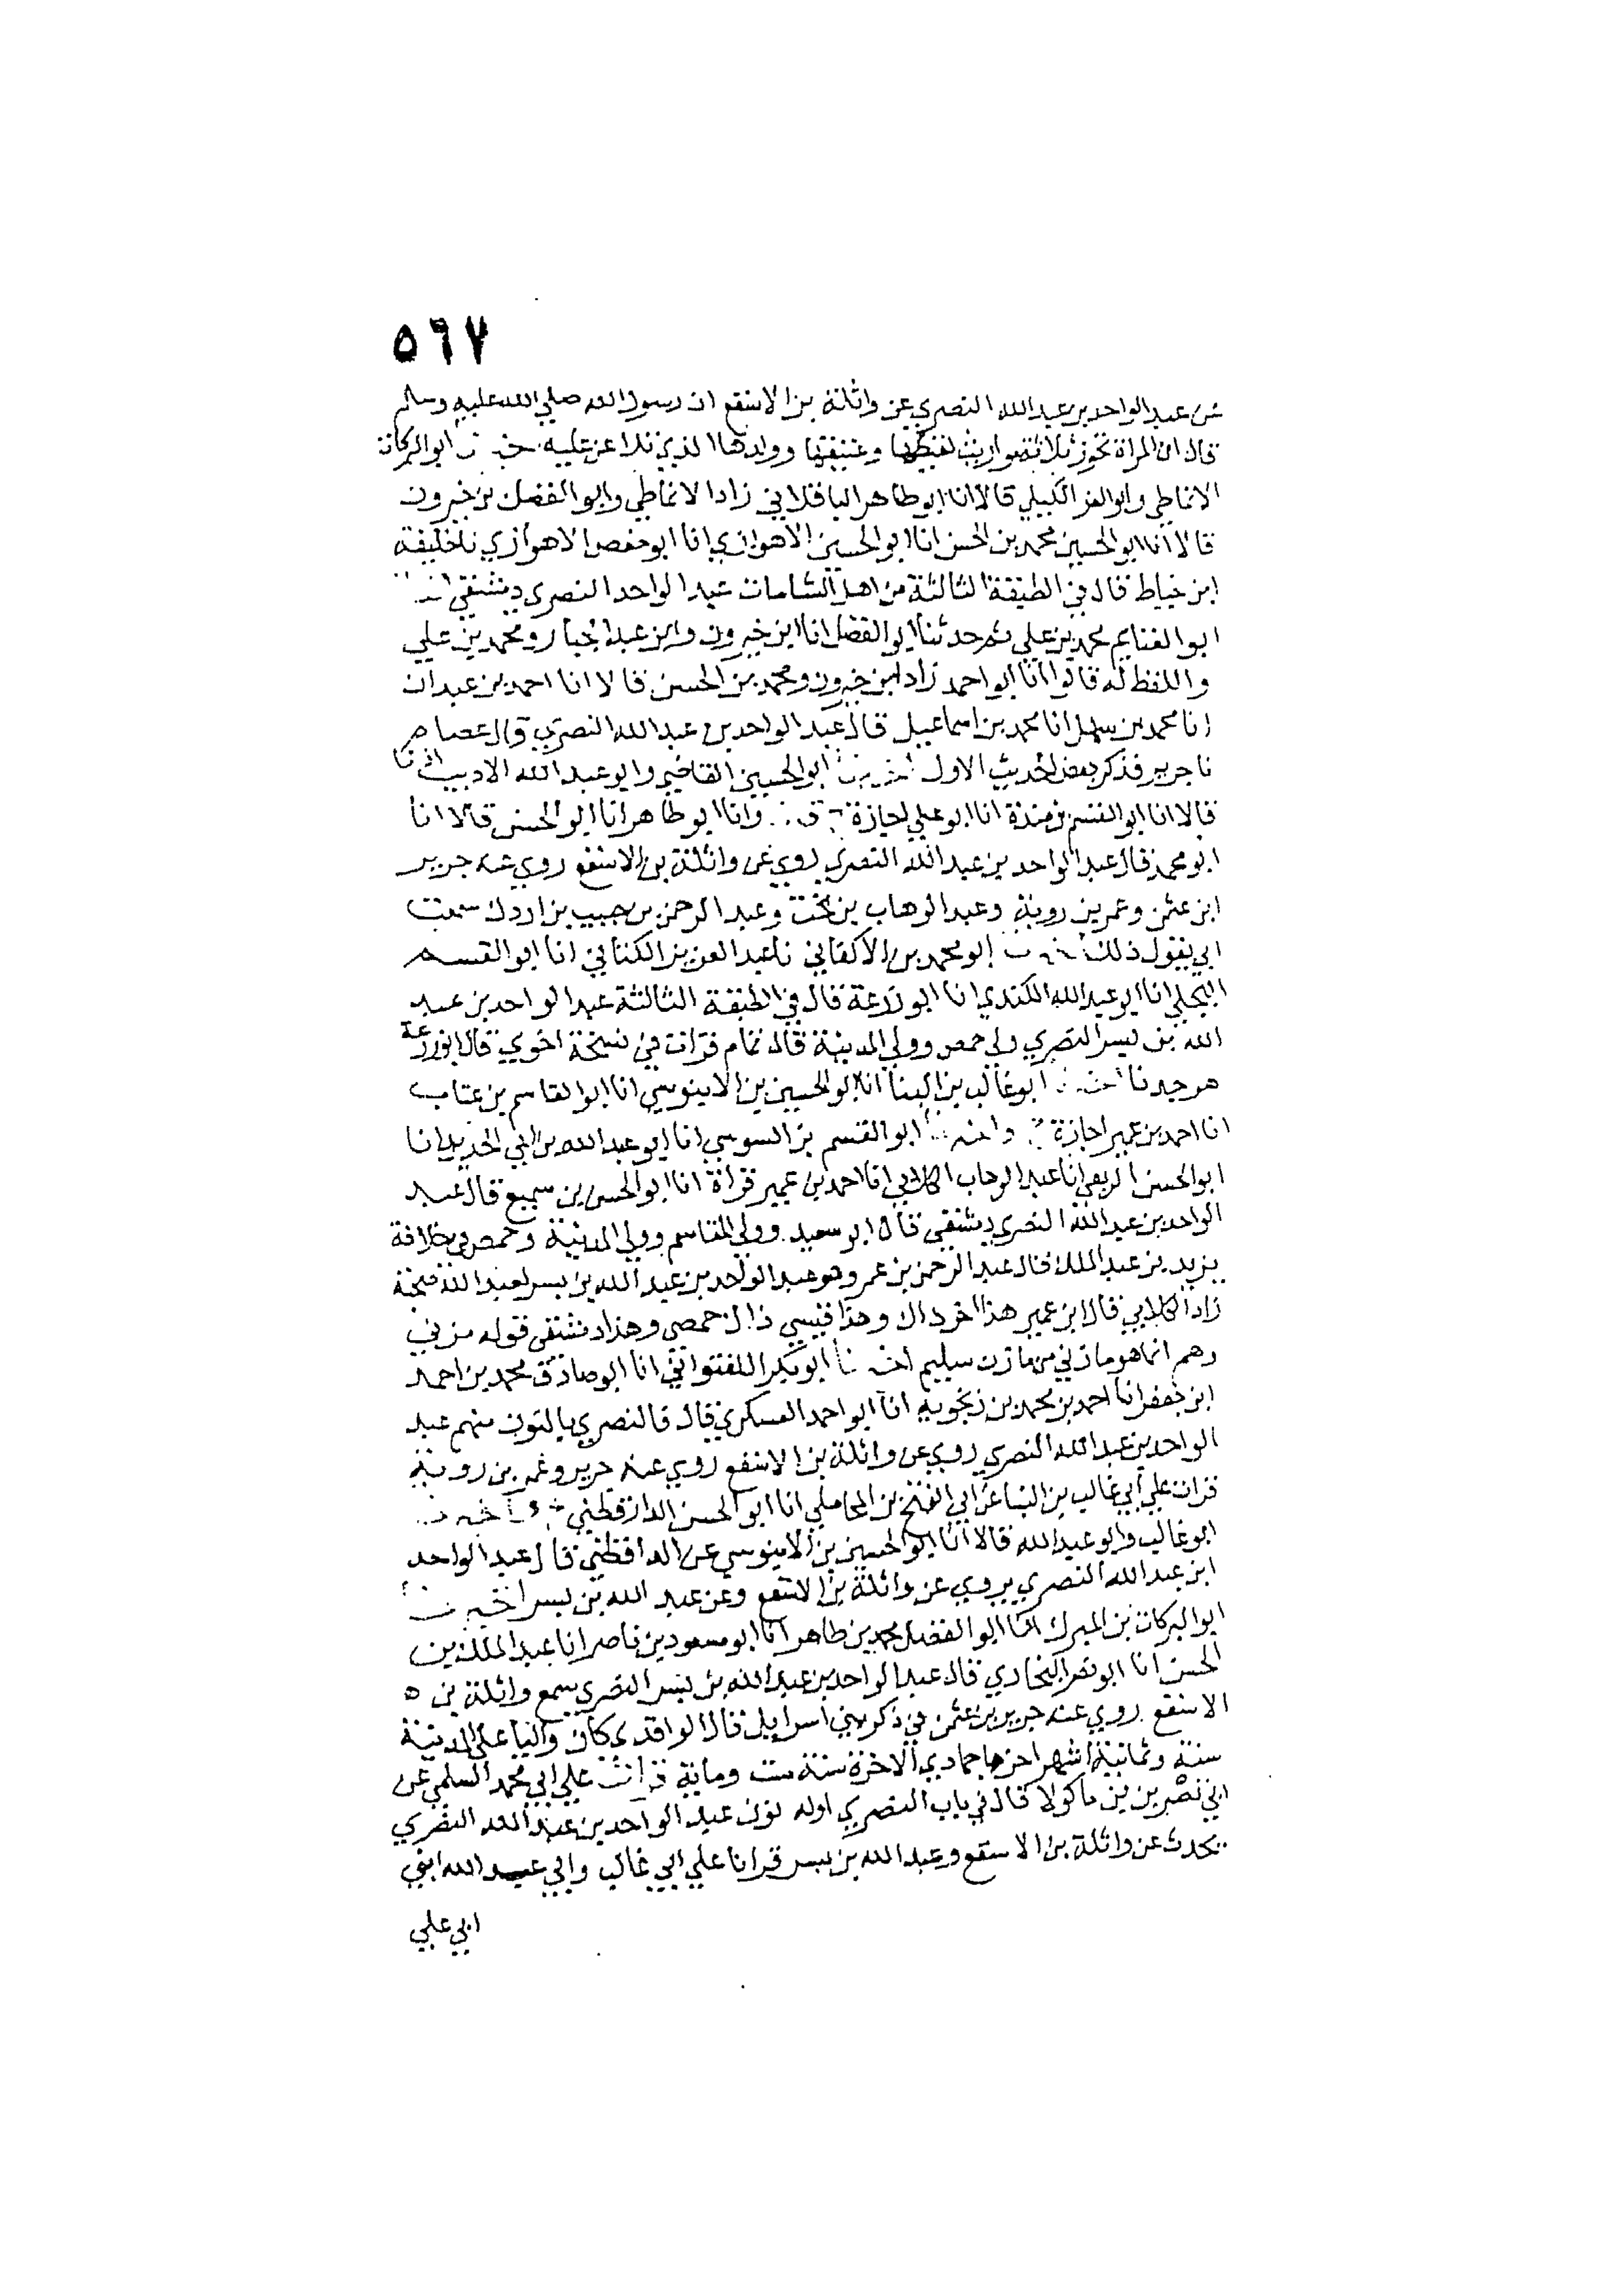 ٥٦٧
عن عبد الواحد بن عبد الله النصري عن واثلة بن الاسقع ان رسول الله صلي الله عليه وسلم
قال ان المراة تحوز ثلاثة مواريث لقيطها وعتيقها وولدها الذي تلاعن عليه ابو البركات
الانماطي وابو العز الكيلي قالا انا ابو طاهر الباقلاني زاد الانماطي وابو الفضل بن خيرون
قالا انا ابو الحسين محمد بن الحسن انا ابو الحسين الاهوازي انا ابو حفص الاهوازي نا خليفة
ابن خياط قال في الطبقة الثالثة من اهل الشامات عبد الواحد النصري دمشقي
ابو الغنايم محمد بن علي ثم حدثنا ابو الفضل انا ابن خيرون وابن عبد الجبار ومحمد بن علي
واللفظ له قالوا انا ابو احمد زاد ابن خيرون ومحمد بن الحسن قالا انا احمد بن عبدان
انا محمد بن سهل انا محمد بن اسماعيل قال عبد الواحد بن عبد الله النصري قال عصام
نا جرير فذكر بعض الحديث الاول ابو الحسين القاضي وابو عبد الله الاديب
قالا انا ابو القسم بن مندة انا ابو علي اجازة وانا ابو طاهر انا ابو الحسن قالا انا
ابو محمد قال عبد الواحد بن عبد الله النصري روي عن واثلة بن الاسقع روي عنه جرير
ابن عثمن وعمر بن روبة وعبد الوهاب بن بخت وعبد الرحمن بن حبيب بن اردك سمعت
ابي يقول ذلك ابو محمد بن الاكفاني نا عبد العزيز الكتاني انا ابو القسم
البجلي انا ابو عبد الله الكندي انا ابو زرعة قال في الطبقة الثالثة عبد الواحد بن عبد
الله بن بسر النصري ولي حمص وولي المدينة قال تمام قرات في نسخة اخري قال ابو زرعة
هو جدنا ابو غالب بن البنا انا ابو الحسين بن الابنوسي انا ابو القاسم بن عتاب
انا احمد بن عمير اجازة ابو القسم بن السوسي انا ابو عبد الله بن ابي الحديد انا
ابو الحسن الربعي انا عبد الوهاب الكلابي انا احمد بن عمير قراة انا ابو الحسن بن سميع قال عبد
الواحد بن عبد الله النصري دمشقي قال ابو سعيد وولي المقاسم وولي المدينة وحمص في خلافة
يزيد بن عبد الملك قال عبد الرحمن بن عمرو هو عبد الواحد بن عبد الله بن بسر لعبد الله صحبة
زاد الكلابي قال ابن عمير هذا اخر ذاك وهذا قيسي ذاك حمصي وهذا دمشقي قوله مزني
وهم انما هو مازني من مازن سليم ابو بكر اللفتواني انا ابو صادق محمد بن احمد
ابن جعفر انا احمد بن محمد بن زنجويه انا ابو احمد العسكري قال قالنصري بالنون منهم عبد
الواحد بن عبد الله النصري روي عن واثلة بن الاسقع روي عنه جرير وعمر بن روبة
قرات علي ابي غالب بن البنا عن ابي الفتح بن المحاملي انا ابو الحسن الدارقطني
ابو غالب وابو عبد الله قالا انا ابو الحسين بن الابنوسي عن الدارقطني قال عبد الواحد
ابن عبد الله النصري يروي عن واثلة بن الاسقع وعن عبد الله بن بسر
ابو البركات بن المبرك انا ابو الفضل محمد بن طاهر انا ابو مسعود بن ناصر انا عبد الملك بن
الحسن انا ابو نصر البخاري قال عبد الواحد بن عبد الله بن بسر النصري سمع واثلة بن
الاسقع روي عنه جرير بن عثمن في ذكر بني اسرايل قال الواقدي كان واليا علي المدينة
سنة وثمانية اشهر اخرها جمادي الاخرة سنة ست ومايه قرات علي ابي محمد السلمي عن
ابي نصر بن ماكولا قال في باب النصري اوله نون عبد الواحد بن عبد الله النصري
يحدث عن واثلة بن الاسقع وعبد الله بن بسر قرانا علي ابي غالب وابي عبد الله ابني
ابي علي